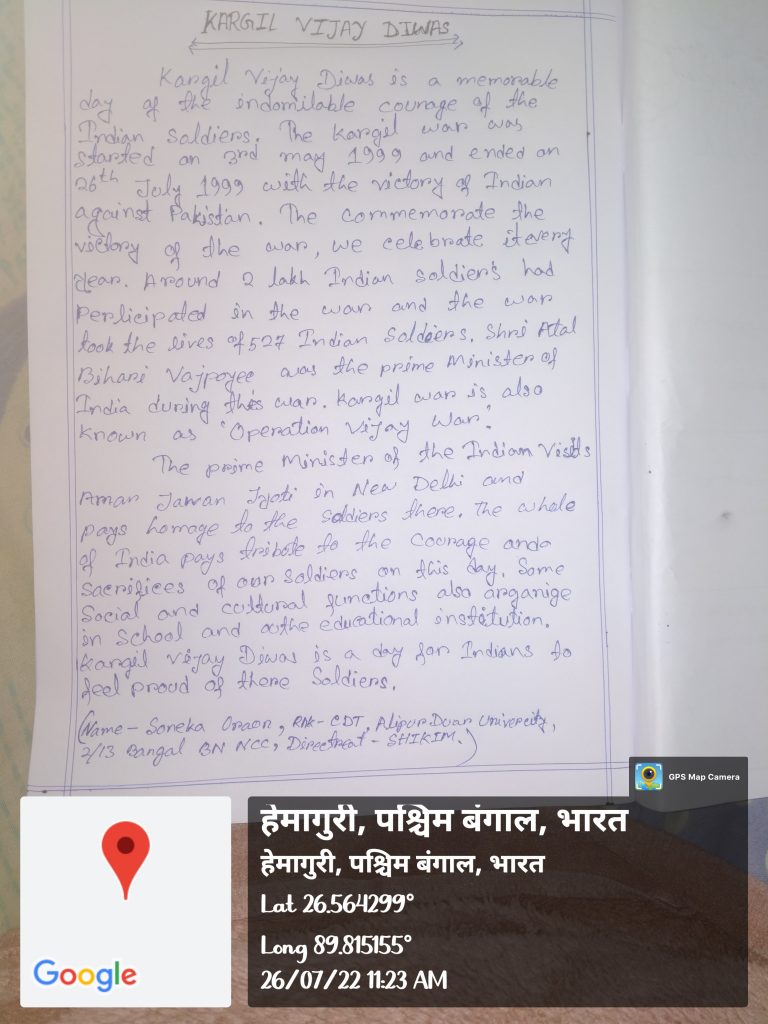 KARGIL VIJAY DIWAS
Kargil Vijay Diwas is a memorable
day of the indomilable courage of the
Indian soldiers. The Kargil war was
started on 3rd may 1999 and ended on
26th July 1999 with the victory of Indian
against Pakistan. The commemorate the
victory of the war, we celebrate it every
year. Around 2 lakh Indian soldier's had
Perlicipated in the war and the war
took the lives of 527 Indian Soldiers. Shri Atal
Bihari Vajpoyee was the prime Minister of
India during this war. Kargil war is also
known as "Operation Vijay War."
The prime Minister of the Indian Visits
Amar Jawan Jyoti in New Delhi and
pays homage to the Soldiers there. The whole
of India pays tribute to the courage and
sacrifices of our soldiers on this day. Some
Social and cultural functions also organige
in School and othe educational institution.
Kargil Vijay Diwas is a day for Indians to
feel proud of there Soldiers.
(Name - Soneka Oraon, RNK - CDT, Alipur Duar Univercity,
2/13 Bangal BN NCC, Directreat - SHIKIM.)
GPS Map Camera
हेमागुरी, पश्चिम बंगाल, भारत
हेमागुरी, पश्चिम बंगाल, भारत
Lat 26.564299°
Long 89.815155°
26/07/22 11:23 AM
Google